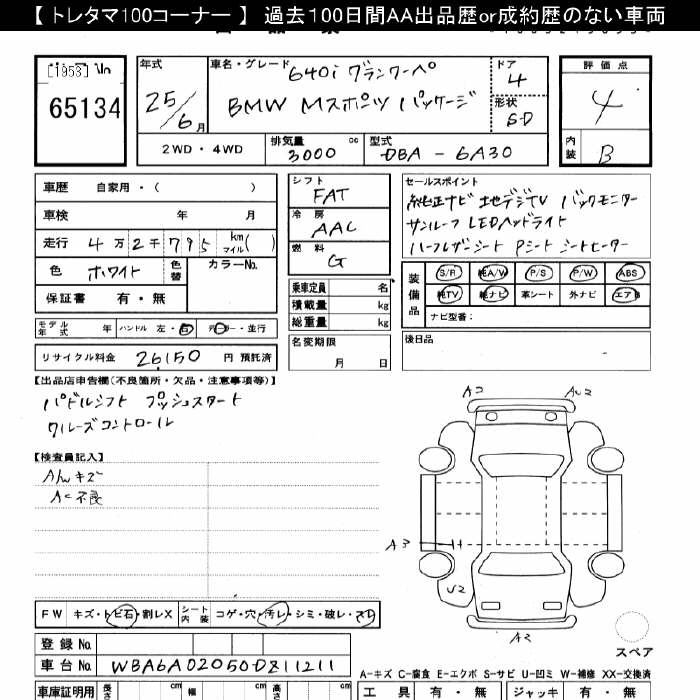 【 トレタマ100コーナー 】 過去100日間AA出品歴or成約歴のない車両
[1953]
65134
年式
25/6月
車名・グレード
640i グランクーペ
BMW Mスポーツ パッケージ
ドア
4
形状
S-D
評価点
4
内装
B
2WD・4WD
排気量
3000 cc
型式
DBA - 6A30
車歴 自家用・( )
車検 年 月
走行 4万2千795 km マイル( )
色 ホワイト 色替 カラーNo.
保証書 有・無
モデル年式 年 ハンドル 左・右 ディーラー・並行
リサイクル料金 26150 円 預託済
シフト
FAT
冷房
AAC
燃料
G
乗車定員 名
積載量 kg
総重量 kg
名変期限
月 日
セールスポイント
純正ナビ 地デジTV バックモニター
サンルーフ LEDヘッドライト
ハーフレザーシート Pシート シートヒーター
装備品
S/R 純A/W P/S P/W ABS
純TV 純ナビ 革シート 外ナビ エアB
ナビ型番:
後日品
【出品店申告欄(不良箇所・欠品・注意事項等)】
パドルシフト プッシュスタート
クルーズコントロール
【検査員記入】
A/W キズ
AC不良
FW キズ・トビ石・割レX シート内装 コゲ・穴・汚レ・シミ・破レ・スレ
登録 No.
車台 No. WBA6A02050D811211
車庫証明用 長さ cm 幅 cm 高さ cm
A2
A3
U2
A2
スペア
A-キズ C-腐食 E-エクボ S-サビ U-凹ミ W-補修 XX-交換済
工具 有・無 ジャッキ 有・無